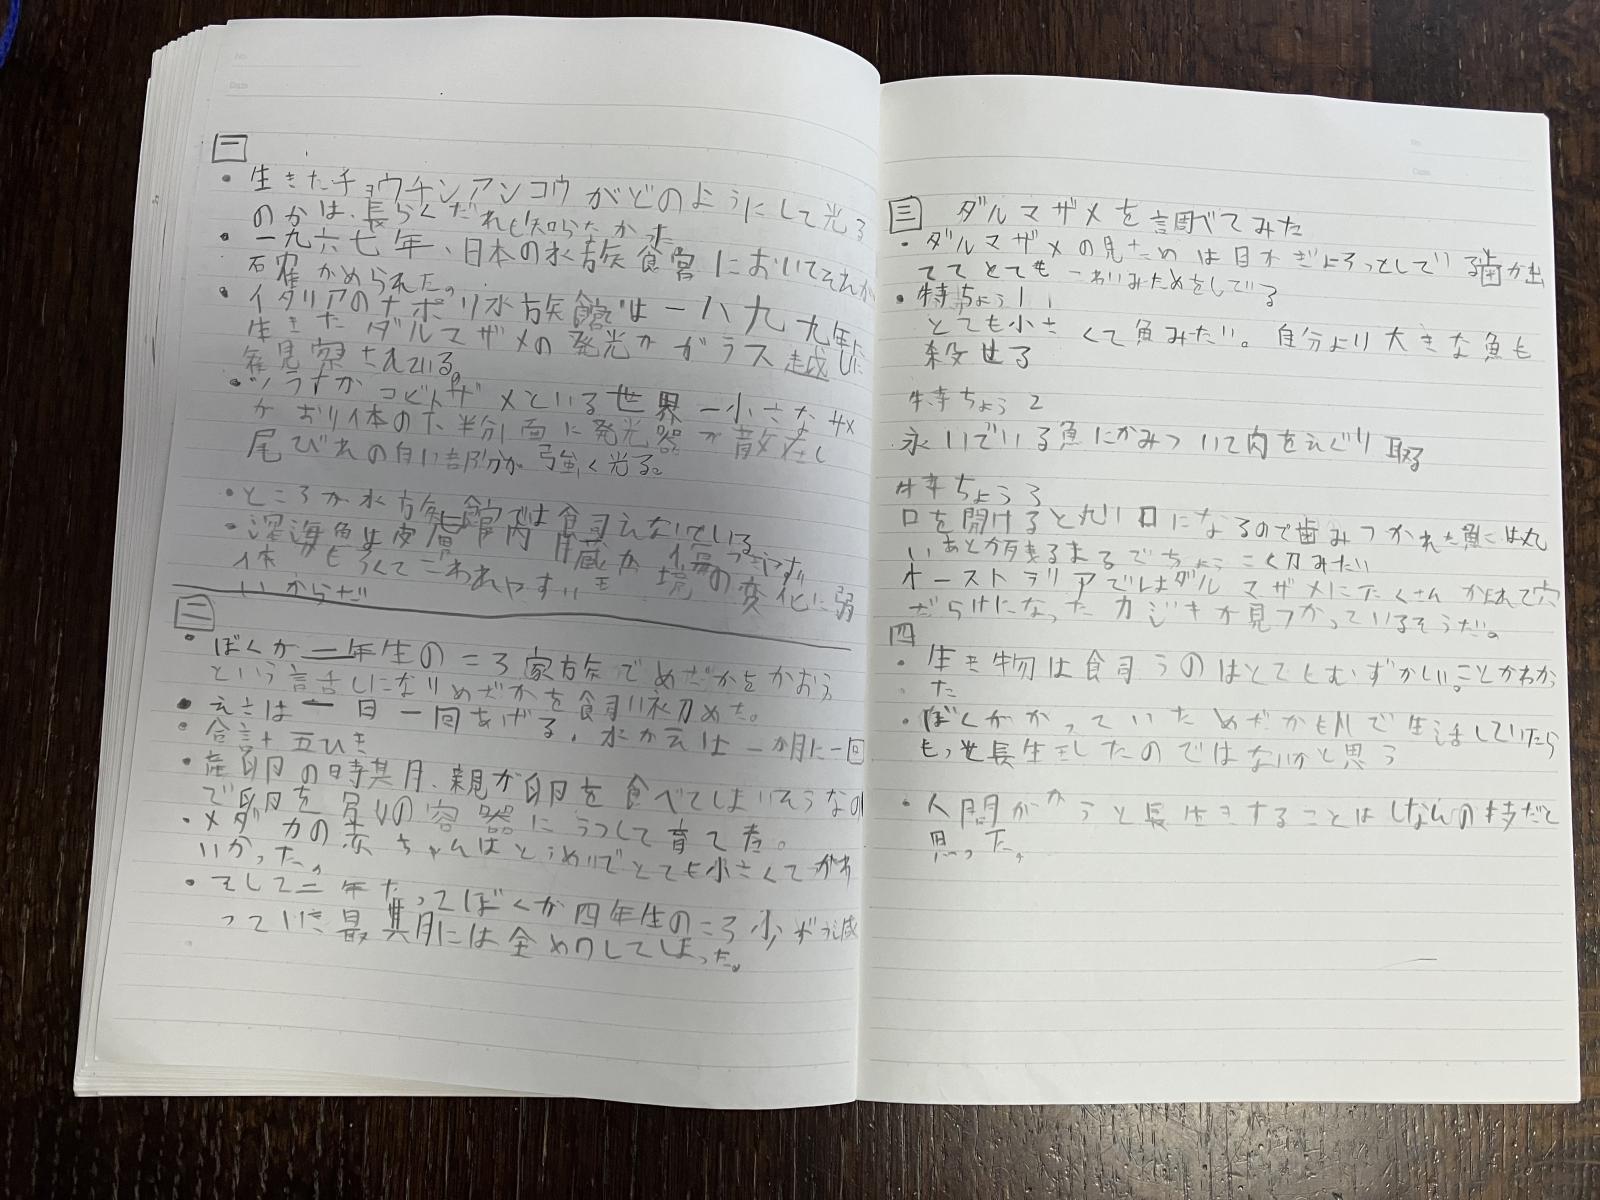 一
・生きたチョウチンアンコウがどのようにして光る
のかは、長らくだれも知らなかった
・一九六七年、日本の水族館においてそれが
確かめられた。
・イタリアのナポリ水族館では一八九九年に
生きたダルマザメの発光がガラス越しに
観察されている。
・ツラナガコビトザメという世界一小さなサメ
がおり体の下半分面に発光器が散在し
尾びれの白い部分が強く光る。
・ところが水族館では飼えないでいる
・深海魚は皮膚 内臓が傷つきやす
体もろくてこわれやすい 境の変化に弱
いからだ
二
・ぼくが二年生のころ家族でめだかをかおう
という話しになりめだかを飼い初めた。
・えさは一日一回あげる。水かえは一か月に一回
・合計十五ひき
・産卵の時期、親が卵を食べてしまいそうなの
で卵を 容器にうつして育てた。
・メダカの赤ちゃんはとうめいでとても小さくてかわ
いかった。
・そして二年たってぼくが四年生のころ少ずつ減
っていき最期には全めつしてしまった。
三 ダルマザメを調べてみた
・ダルマザメの見ためは目がぎょろっとしている歯が出
ててとてもこわいみためをしている
・特ちょう1
とても小さくて魚みたい。自分より大きな魚も
殺せる
特ちょう2
泳いでいる魚にかみついて肉をえぐり取る
特ちょう3
口を開けると丸い口になるので歯みつかれた魚には丸
いあとが残るまるでちょうこく刀みたい
オーストラリアではダルマザメにたくさんかまれて穴
だらけになったカジキが見つかっているそうだ。
四
・生き物は飼うのはとてもむずかしいことがわかっ
た
・ぼくがかっていためだかも川で生活していたら
もっと長生きしたのではないかと思う
・人間がかうと長生きすることはしなんの だと
思った。